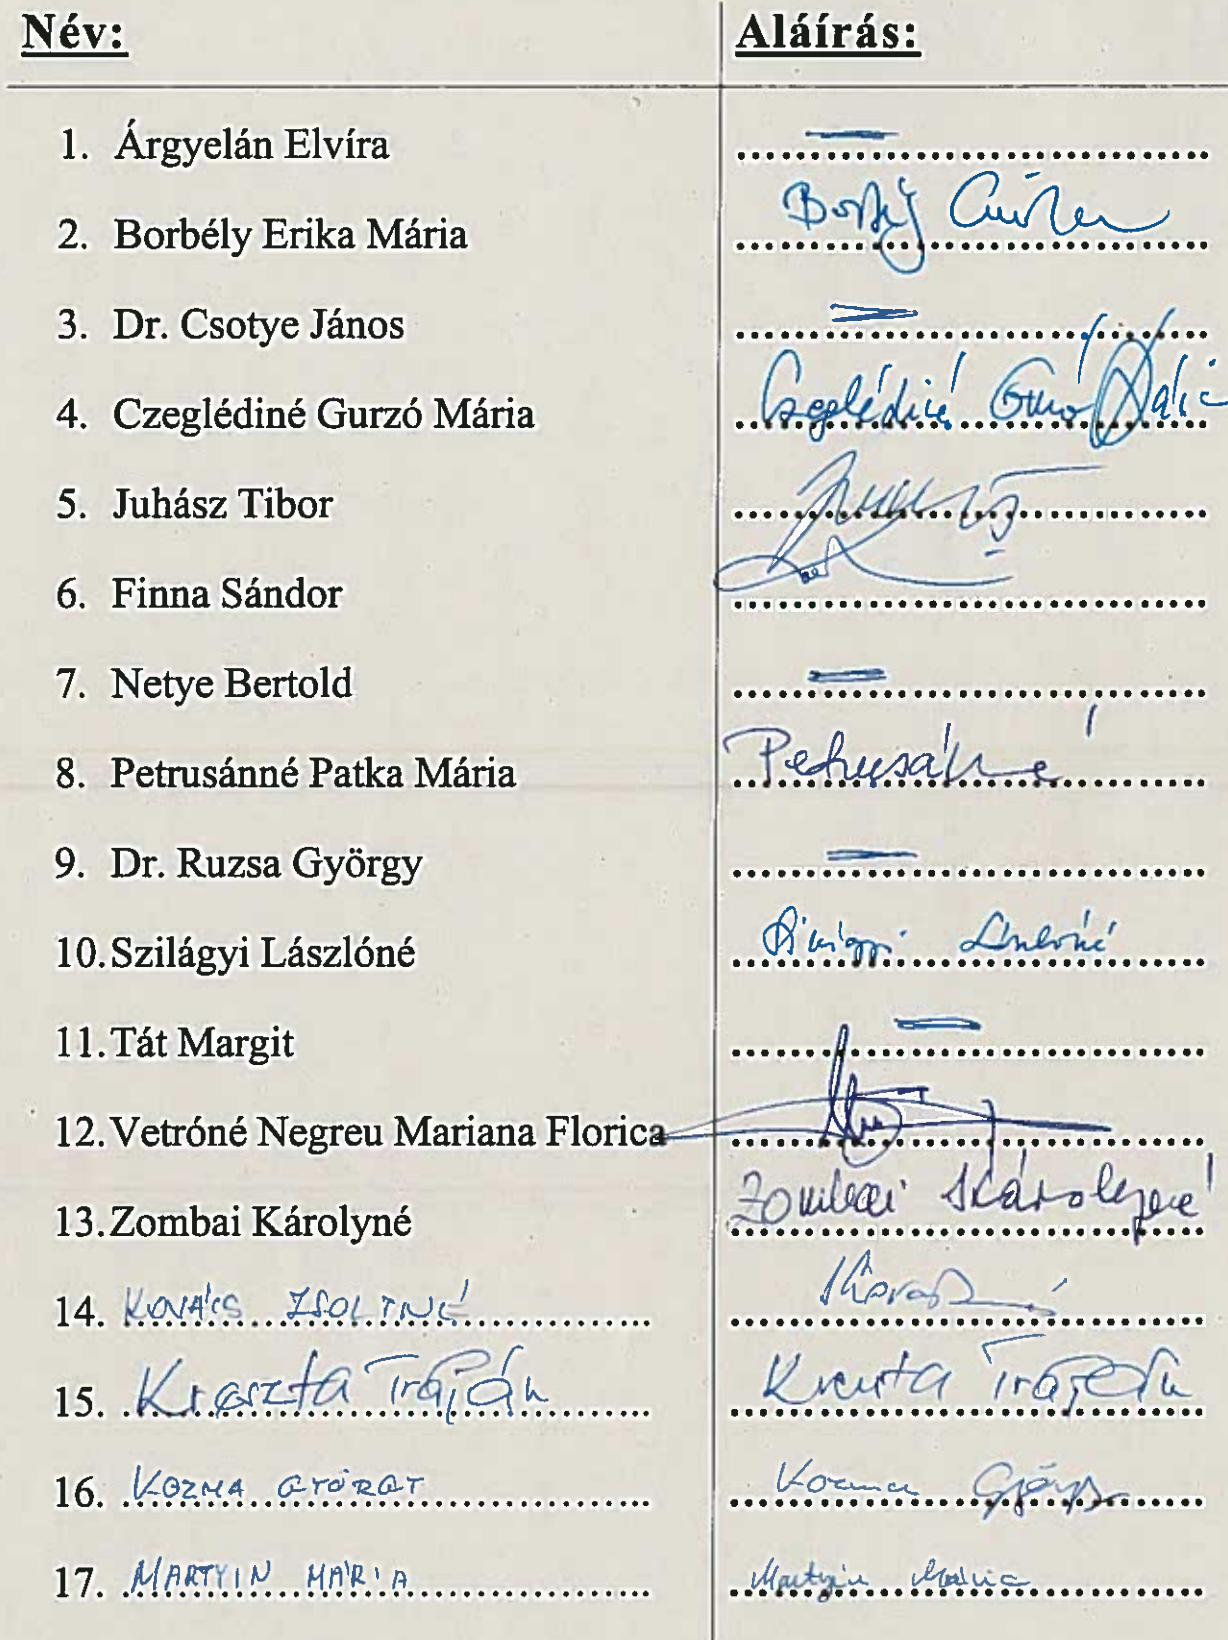 Név: Aláírás:
1. Árgyelán Elvíra
2. Borbély Erika Mária Borbély
3. Dr. Csotye János
4. Czeglédiné Gurzó Mária Czeglédiné Gurzó Mária
5. Juhász Tibor
6. Finna Sándor
7. Netye Bertold
8. Petrusánné Patka Mária Petrusánné
9. Dr. Ruzsa György
10. Szilágyi Lászlóné Szilágyi Lászlóné
11. Tát Margit
12. Vetróné Negreu Mariana Florica
13. Zombai Károlyné Zombai Károlyné
14. KOVÁCS ZSOLTNÉ
15. Kreszta Traján Kreszta Traján
16. KOZMA GYÖRGY Kozma György
17. MARTYIN MÁRIA Martyin Mária